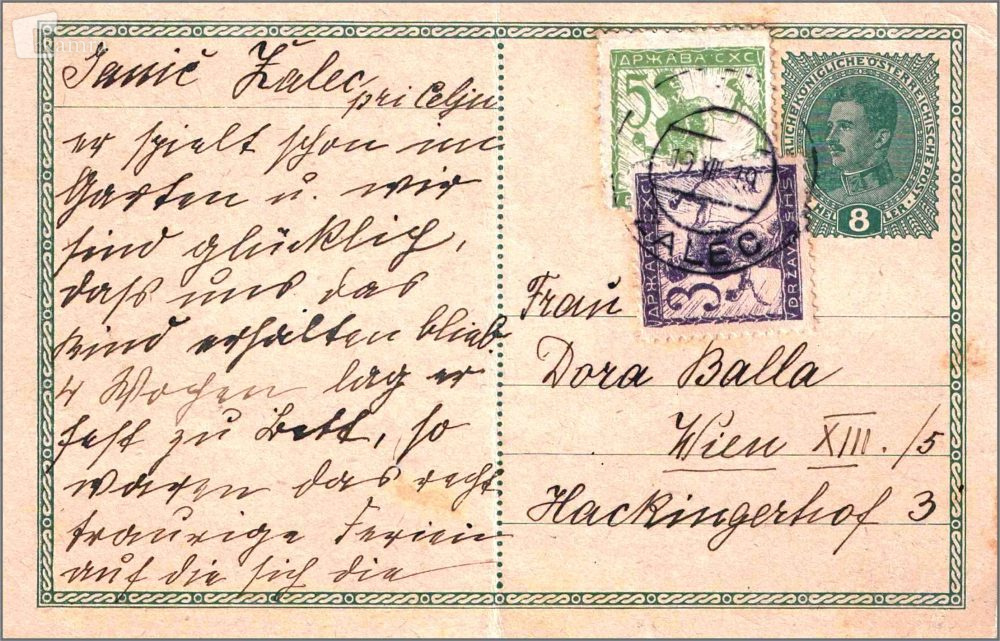 Janič Žalec
pri Celju
er spielt schon im
Garten u. wir
sind glücklich,
dass uns das
Kind erhalten blieb.
4 Wochen lag er
fest zu Bett, so
waren das recht
traurige Ferien
auf die sich die
ДРЖАВА СХС
5
ДРЖАВА СХС
3
DRŽAVA SHS
ALEC
KÖNIGLICHE ÖSTERREICHISCHE POST
8
Frau
Dora Balla
Wien XIII./5
Hackingerhof 3